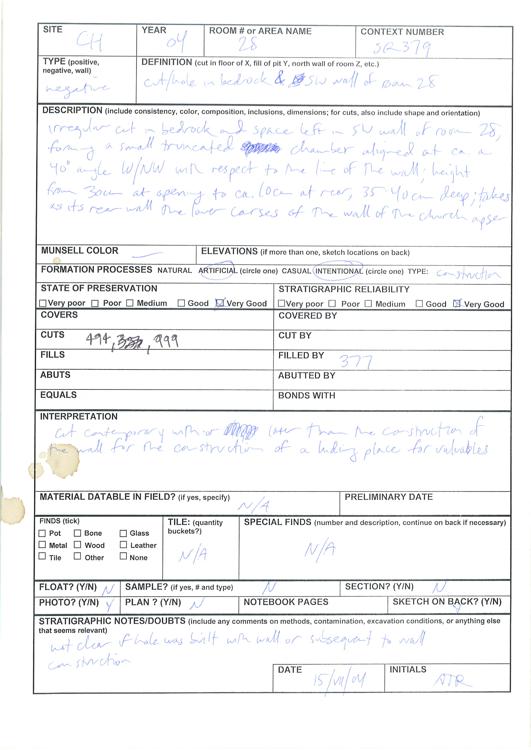 SITE
CH
YEAR
04
ROOM # or AREA NAME
28
CONTEXT NUMBER
SU 379
TYPE (positive, negative, wall)
negative
DEFINITION (cut in floor of X, fill of pit Y, north wall of room Z, etc.)
cut/hole in bedrock & SW wall of room 28
DESCRIPTION (include consistency, color, composition, inclusions, dimensions; for cuts, also include shape and orientation)
irregular cut in bedrock and space left in SW wall of room 28,
forming a small truncated chamber aligned at ca. a
40° angle W/NW with respect to the line of the wall; height
from 30cm at opening to ca. 10cm at rear, 35-40cm deep; takes
as its rear wall the lower corses of the wall of the church apse
MUNSELL COLOR
ELEVATIONS (if more than one, sketch locations on back)
FORMATION PROCESSES NATURAL ARTIFICIAL (circle one) CASUAL INTENTIONAL (circle one) TYPE: construction
STATE OF PRESERVATION
Very poor Poor Medium Good Very Good
STRATIGRAPHIC RELIABILITY
Very poor Poor Medium Good Very Good
COVERS
COVERED BY
CUTS 494, 999
CUT BY
FILLS
FILLED BY 377
ABUTS
ABUTTED BY
EQUALS
BONDS WITH
INTERPRETATION
cut contemporary with or later than the construction of
the wall for the construction of a hiding place for valuables
MATERIAL DATABLE IN FIELD? (if yes, specify)
N/A
PRELIMINARY DATE
FINDS (tick)
Pot Bone Glass
Metal Wood Leather
Tile Other None
TILE: (quantity buckets?)
N/A
SPECIAL FINDS (number and description, continue on back if necessary)
N/A
FLOAT? (Y/N) N
SAMPLE? (if yes, # and type) N
SECTION? (Y/N) N
PHOTO? (Y/N) Y
PLAN ? (Y/N) N
NOTEBOOK PAGES
SKETCH ON BACK? (Y/N) Y
STRATIGRAPHIC NOTES/DOUBTS (include any comments on methods, contamination, excavation conditions, or anything else that seems relevant)
not clear if hole was built with wall or subsequent to wall
construction
DATE
15/VII/04
INITIALS
ATR